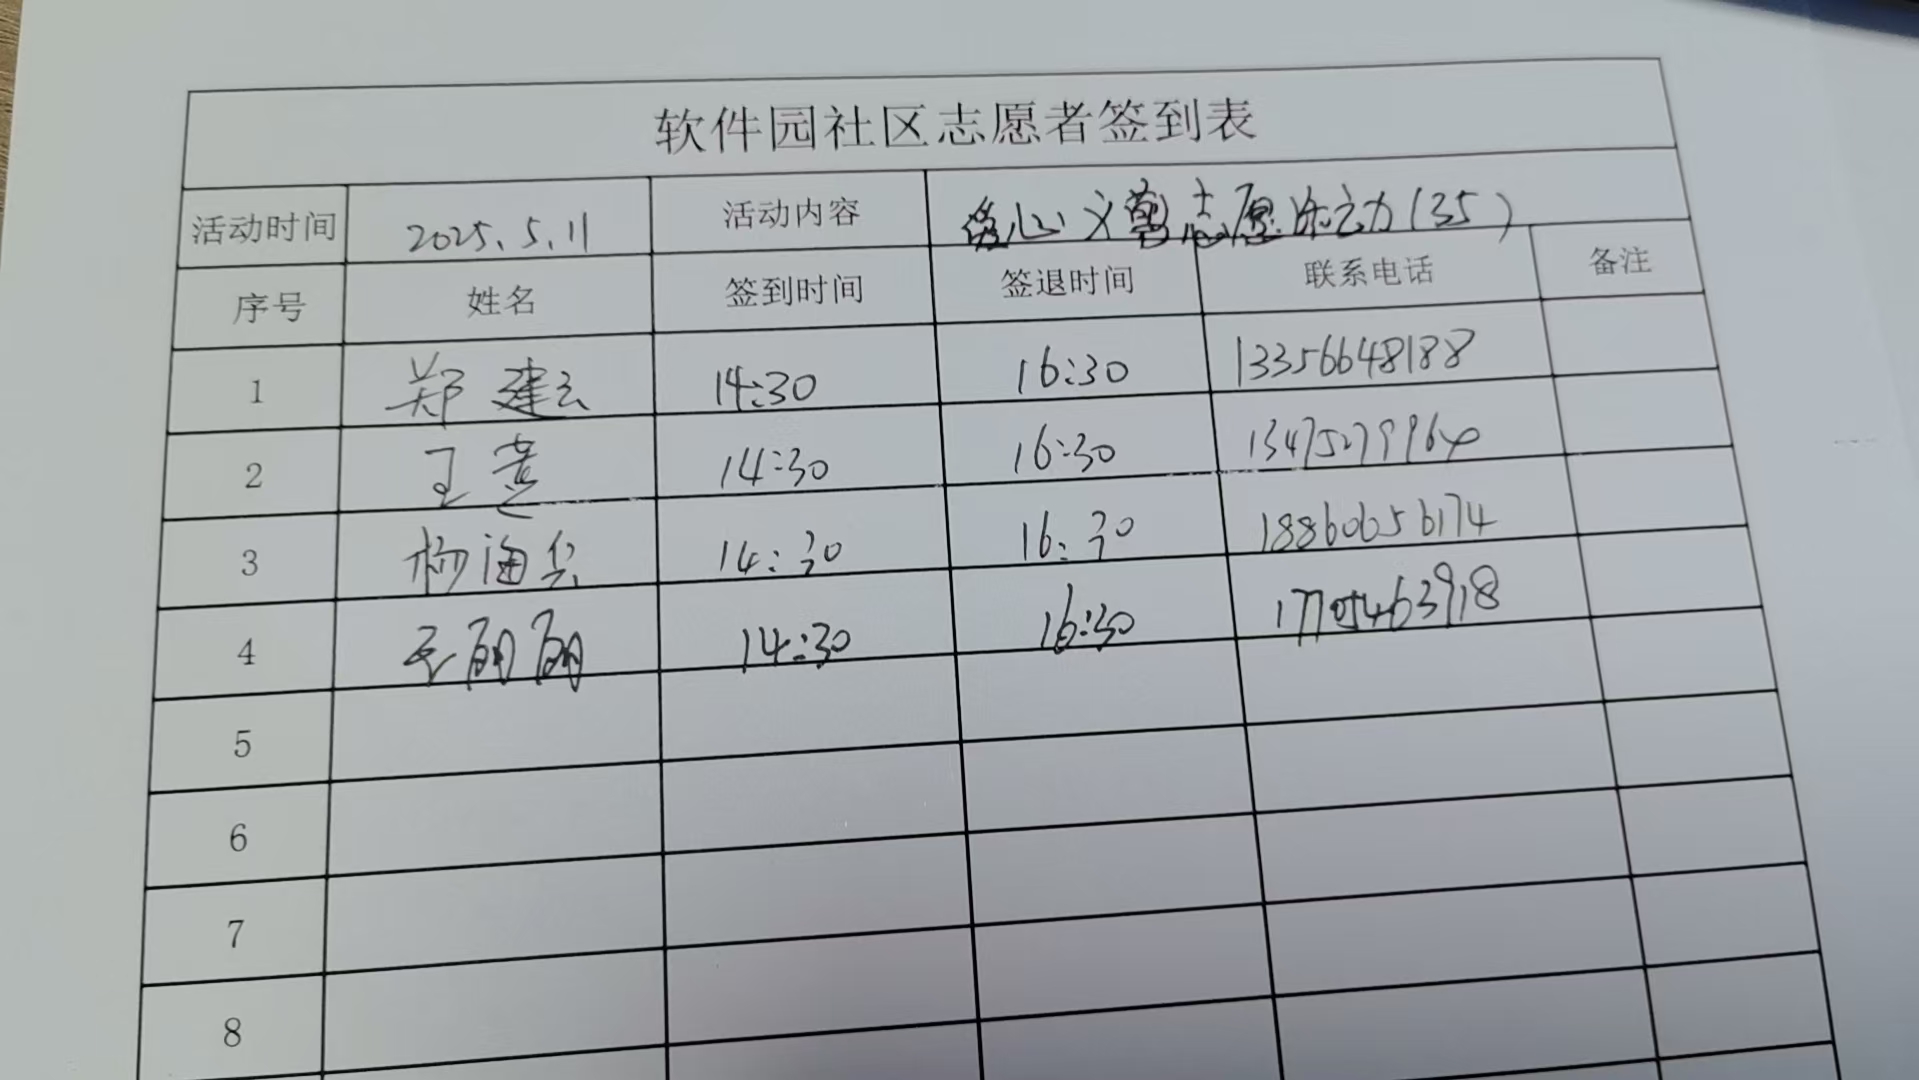 软件园社区志愿者签到表
活动时间 2025.5.11 活动内容 爱心义剪志愿活动(35)
序号 姓名 签到时间 签退时间 联系电话 备注
1 郑建云 14:30 16:30 13356648188
2 王 14:30 16:30
3 杨海兰 14:30 16:30 18860656174
4 王丽丽 14:30 16:30
5
6
7
8